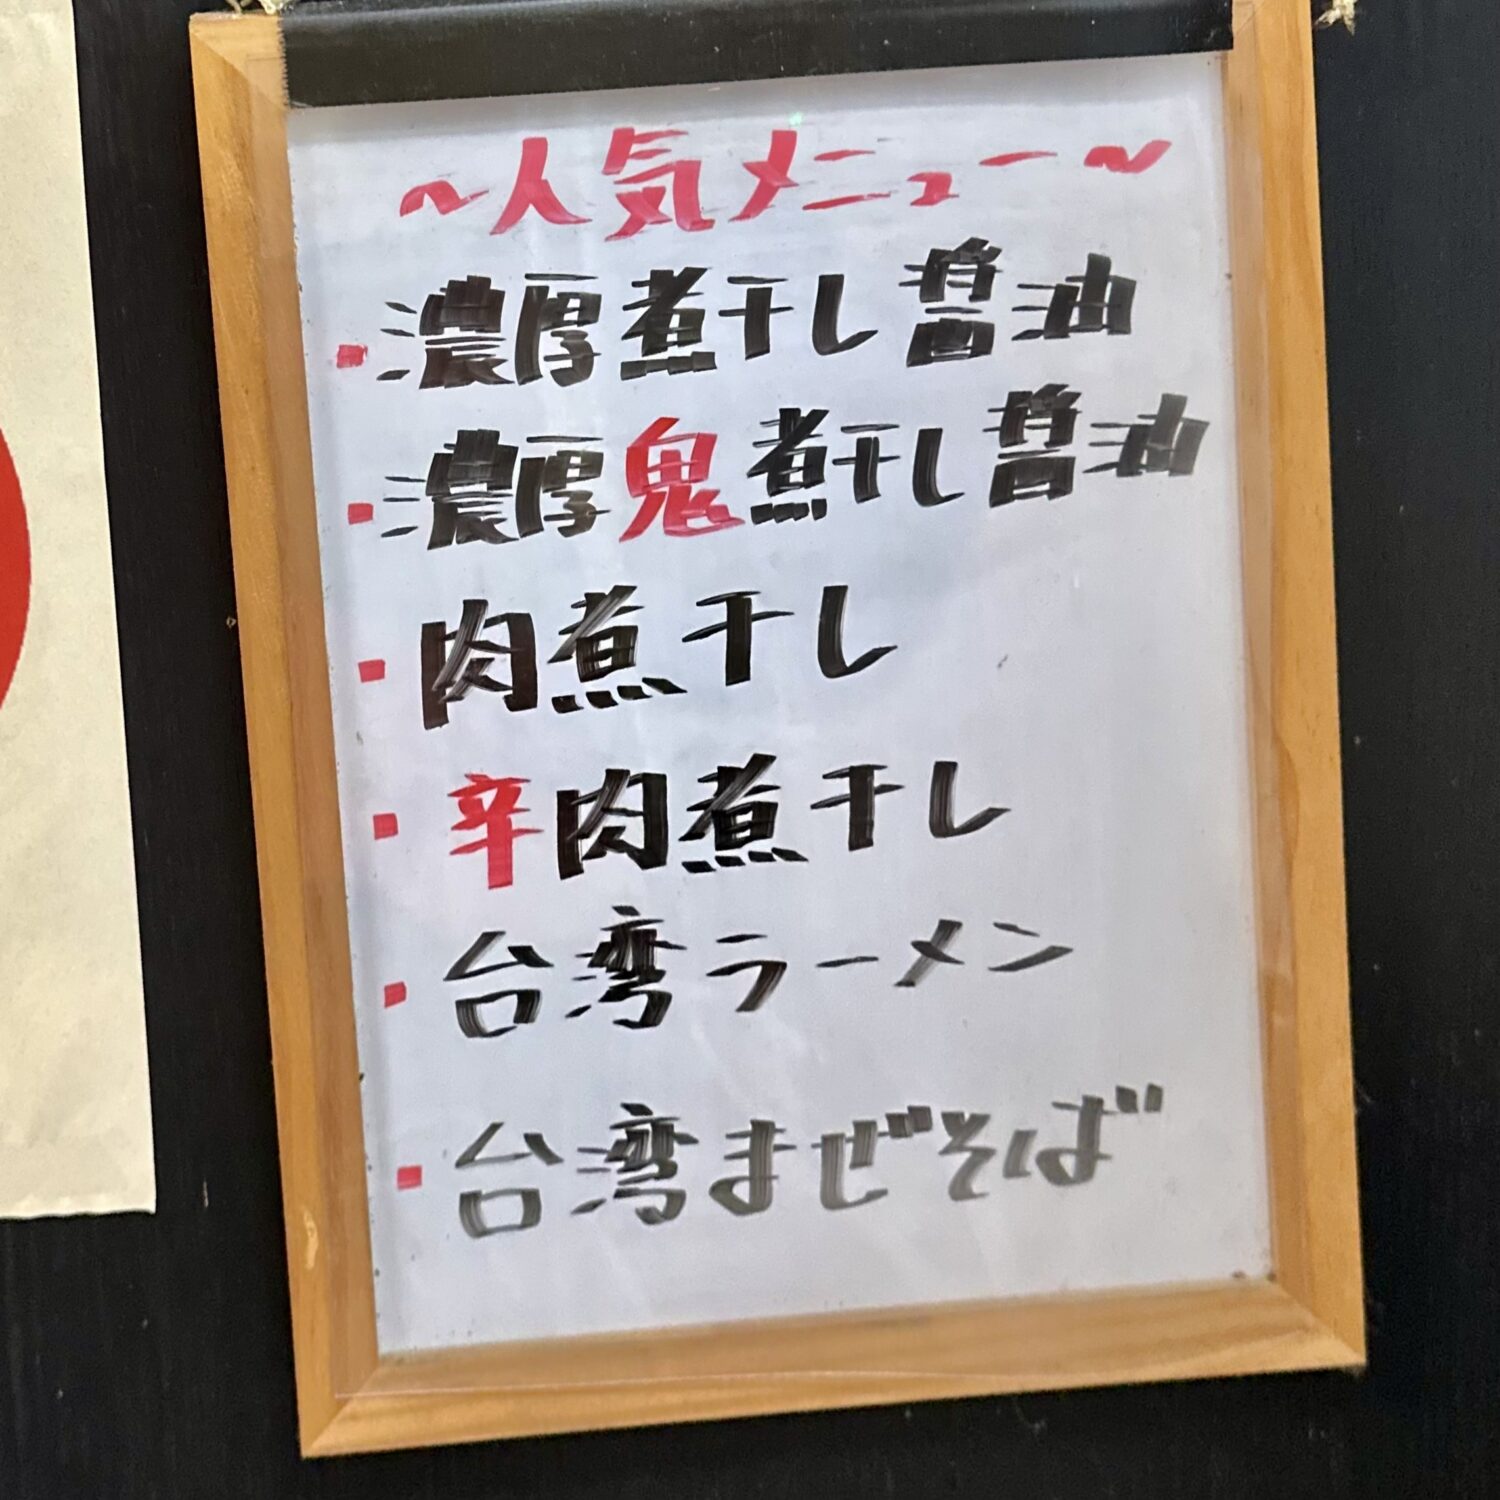 ～人気メニュー～
・濃厚煮干し醤油
・濃厚鬼煮干し醤油
・肉煮干し
・辛肉煮干し
・台湾ラーメン
・台湾まぜそば